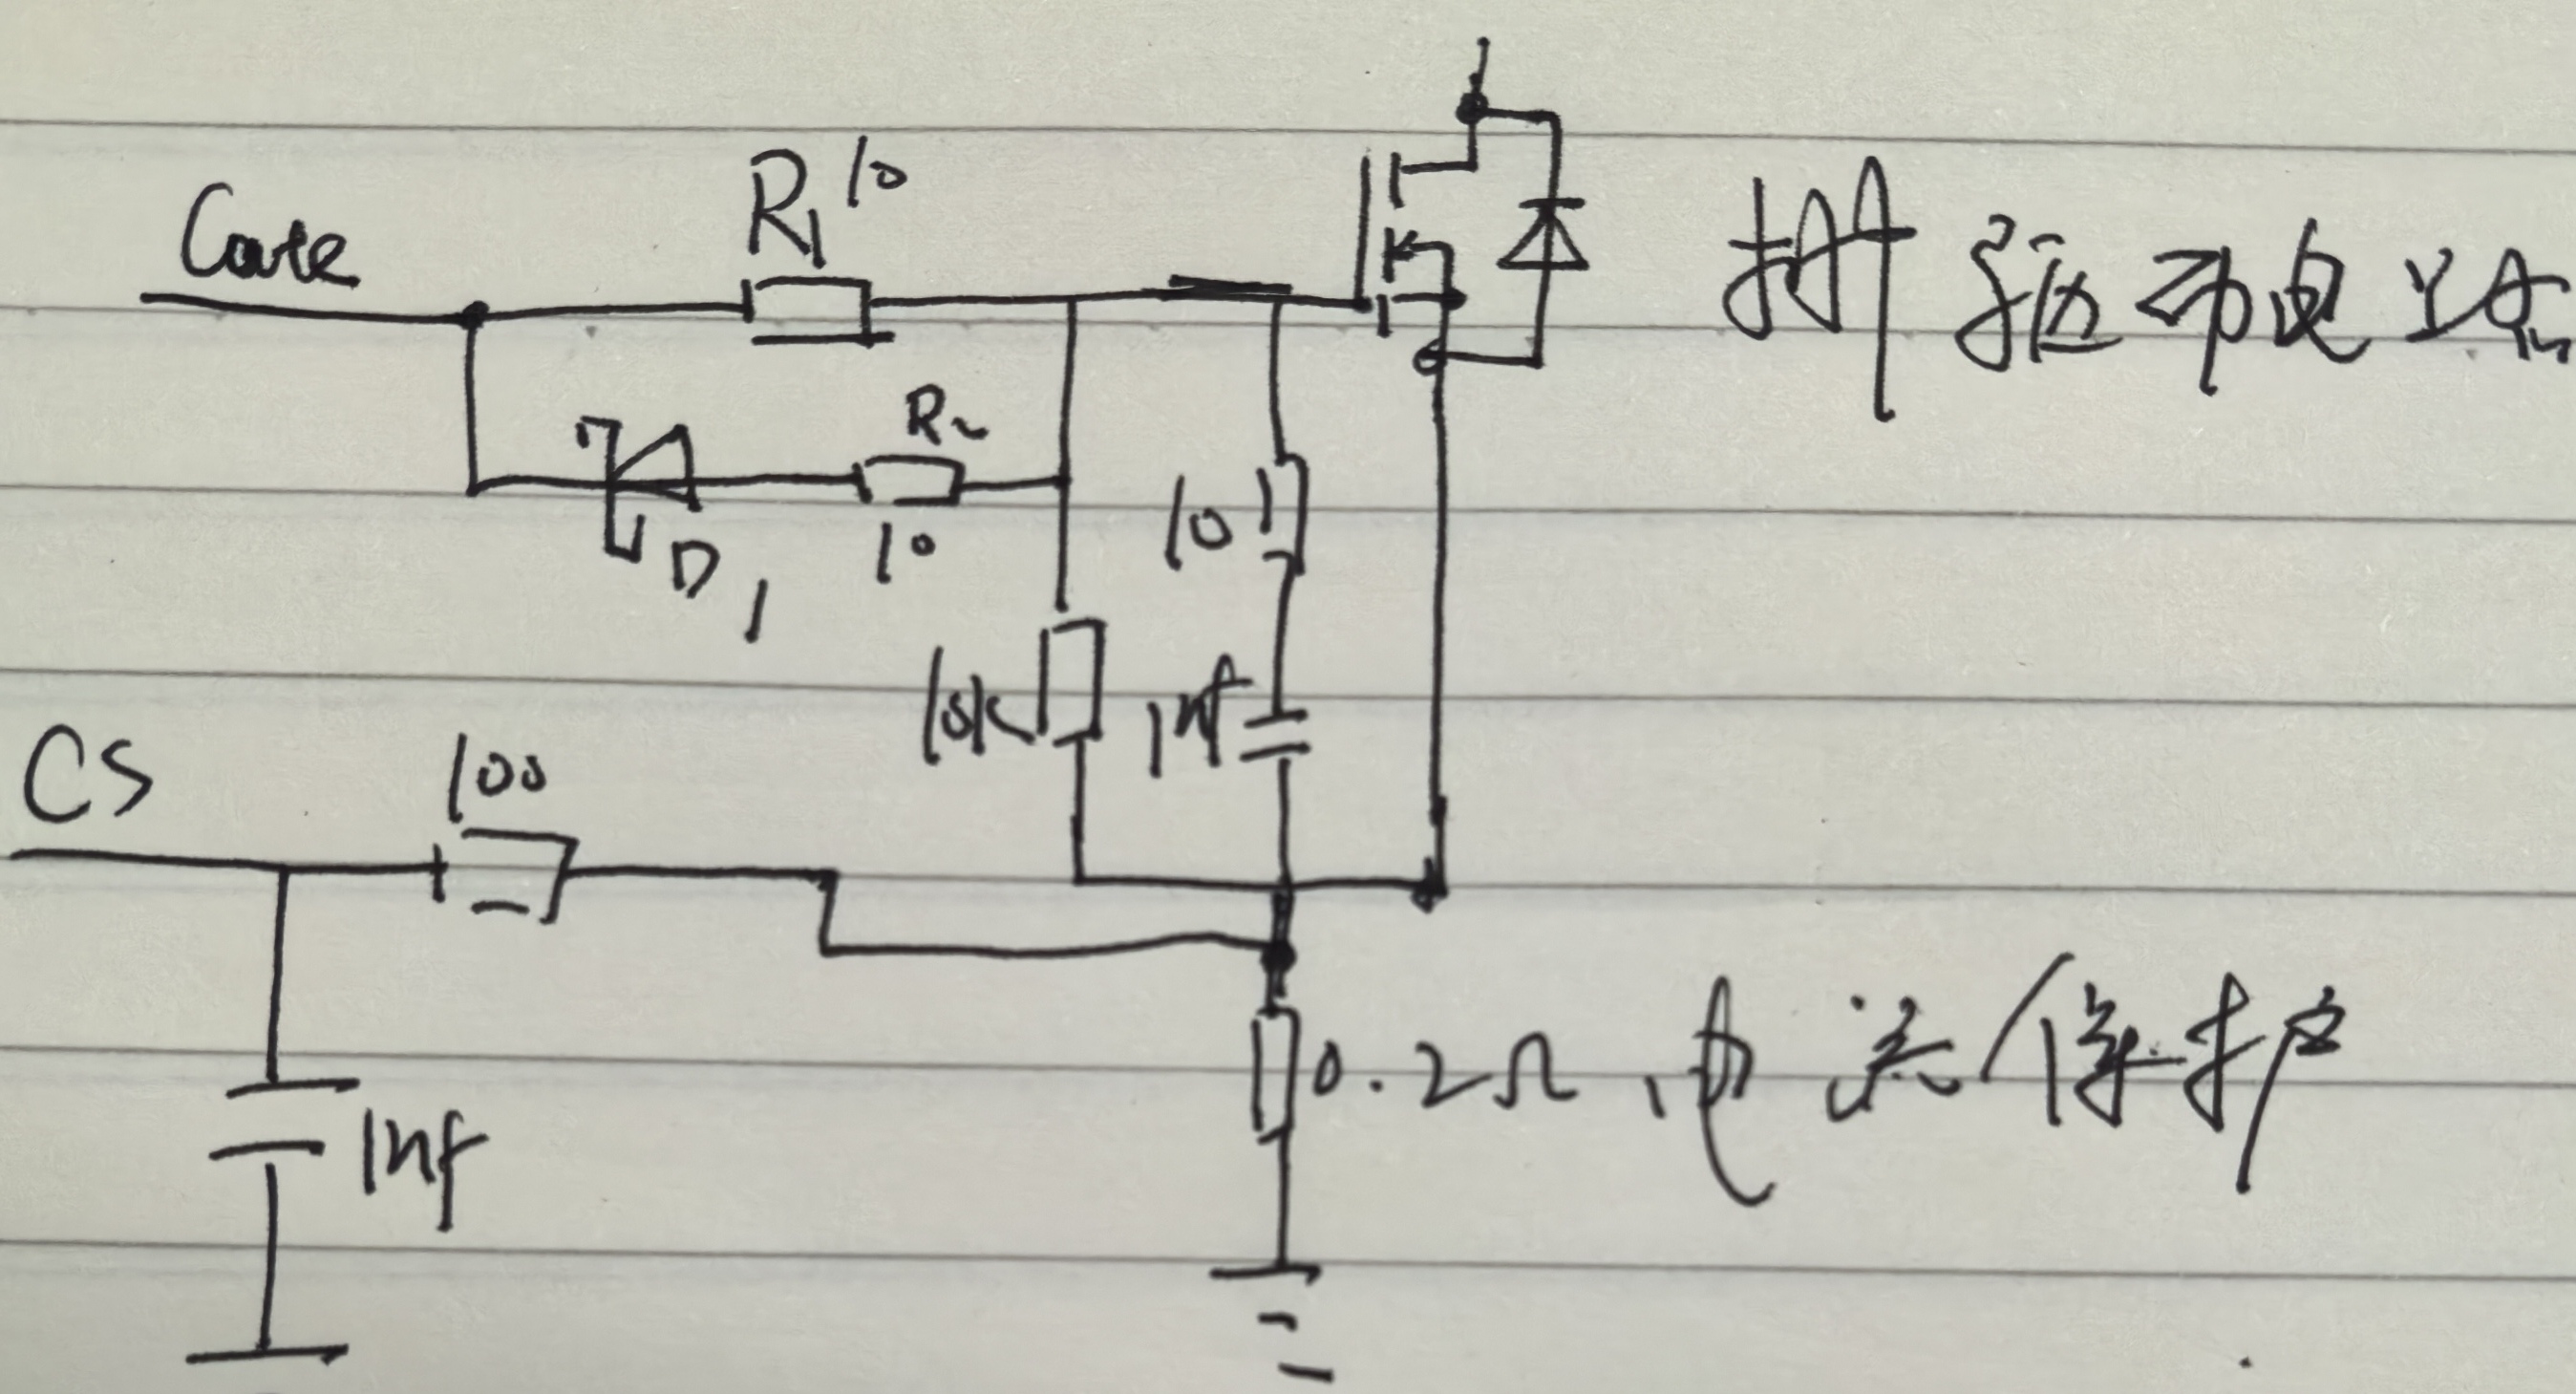 R1 10
Gate
驱动电路
R2
10
D1
10
10k
1nf
CS
100
0.2Ω, 电流保护
1nf